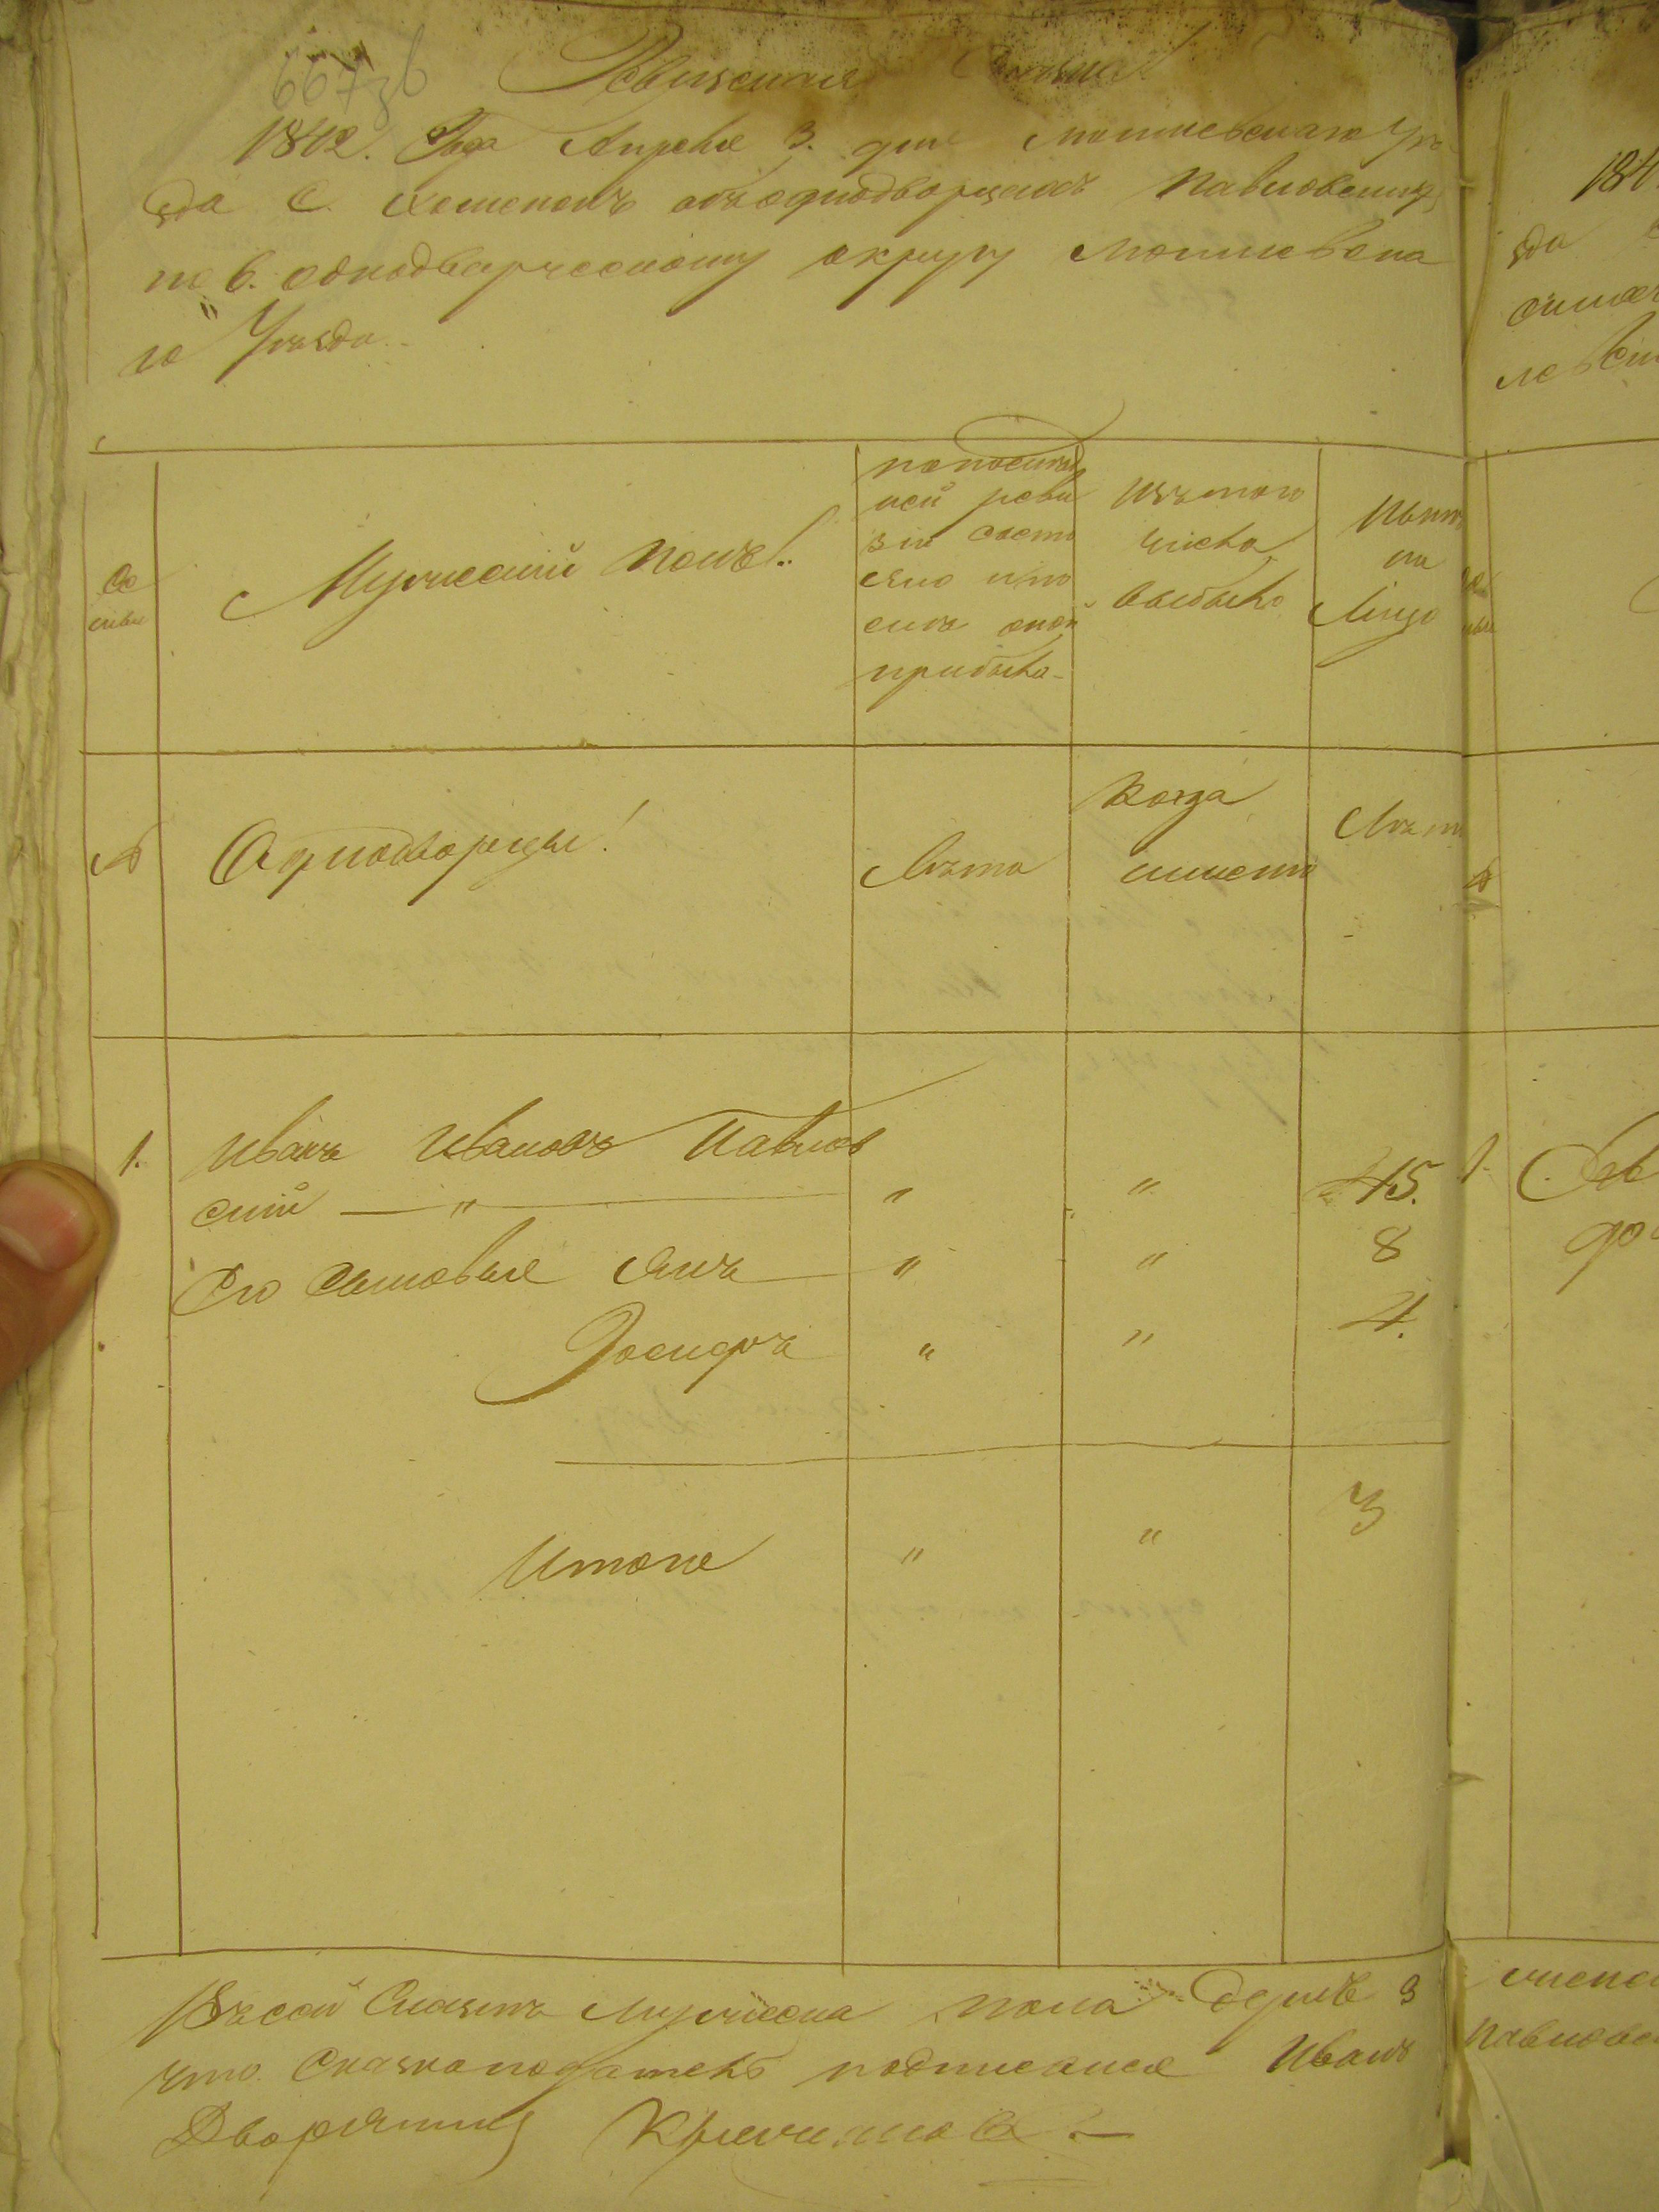 Ревизская Сказка
1842. Года Апреля 3. дня Могилевскаго Уѣ
зда С. объ однодворцахъ Павловскихъ
по 6. однодворческому округу Могилевска
го Уѣзда
Се
мьи
Мужескій Полъ.
по послѣд
ней реви
зіи состо
яло и по
слѣ оной
прибыло
Изъ того
числа
выбыло
Нынѣ
на
Лицо
№
Однодворцы!
Лѣта
Когда
именно
Лѣта
1. Иванъ Ивановъ Павлов
скій — " — " " 45.
Его Сыновья Янъ — " " 8
Іосифъ " " 4.
Итого " " 3
Въ сей Сказкѣ Мужеска пола Душъ 3
что Сказкоподатель подписался Иванъ
Дворянинъ
184
зда
1.
числа
Павловс